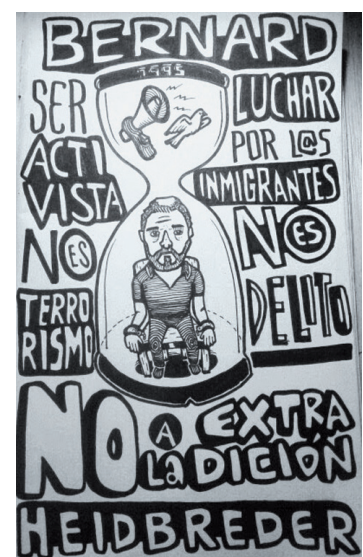 BERNARD
1995
SER
ACTI
VISTA
NO ES
TERRO
RISMO
LUCHAR
POR L@S
INMIGRANTES
NO ES
DELITO
NO A
La EXTRA
DICIÓN
HEIDBREDER